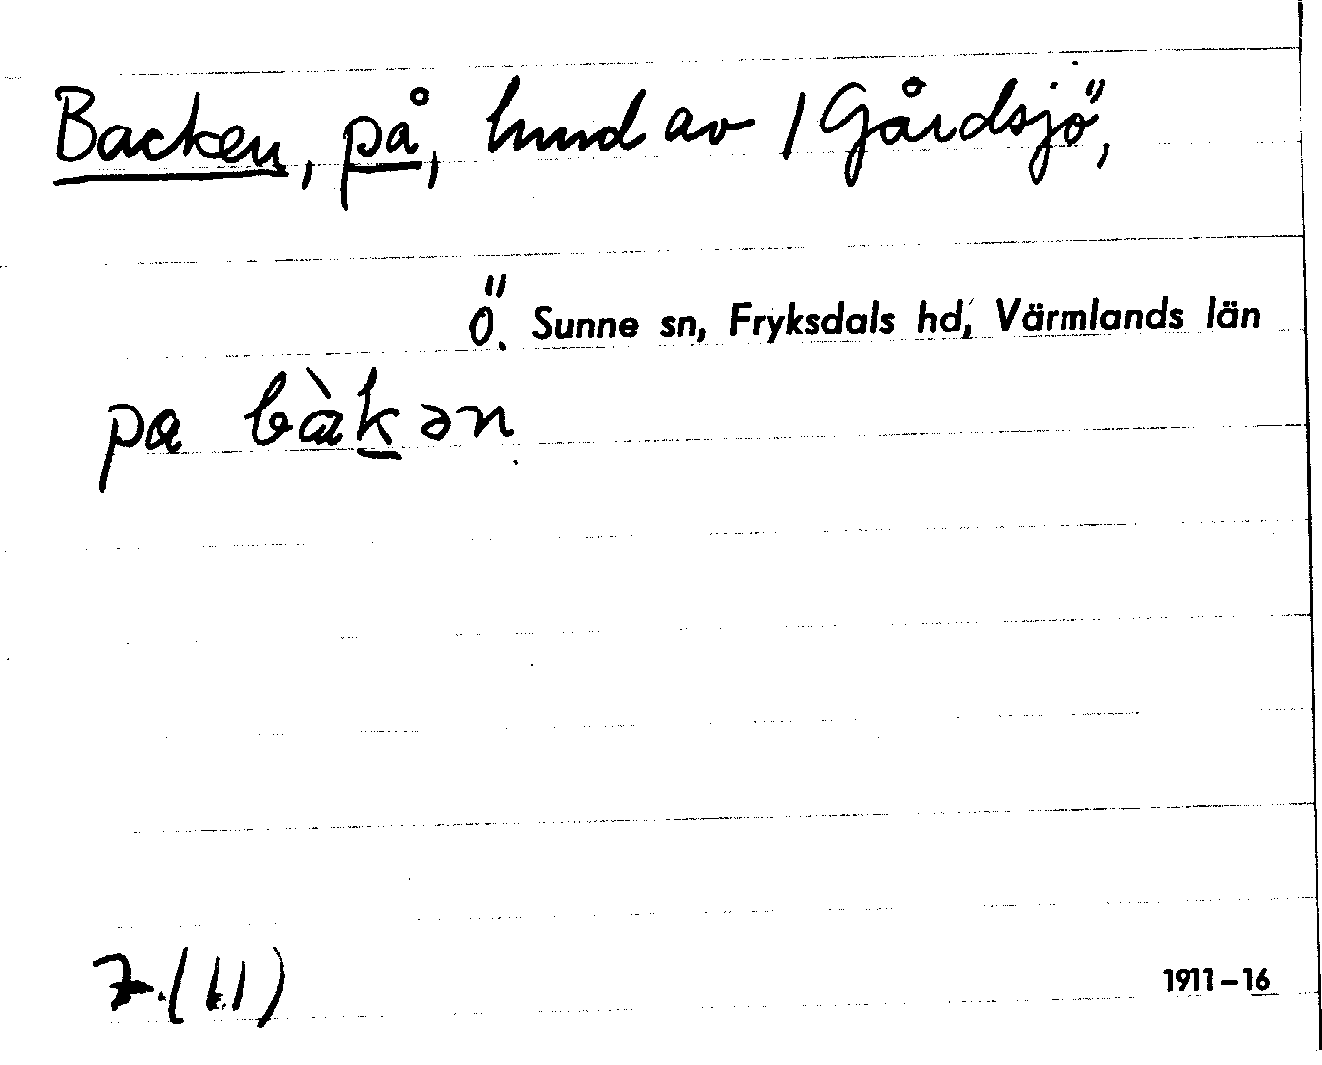 Backen, på, hmd av 1 Gårdsjö,
Ö. Sunne sn, Fryksdals hd, Värmlands län
pa bàkən
7.(1.1)
1911–16